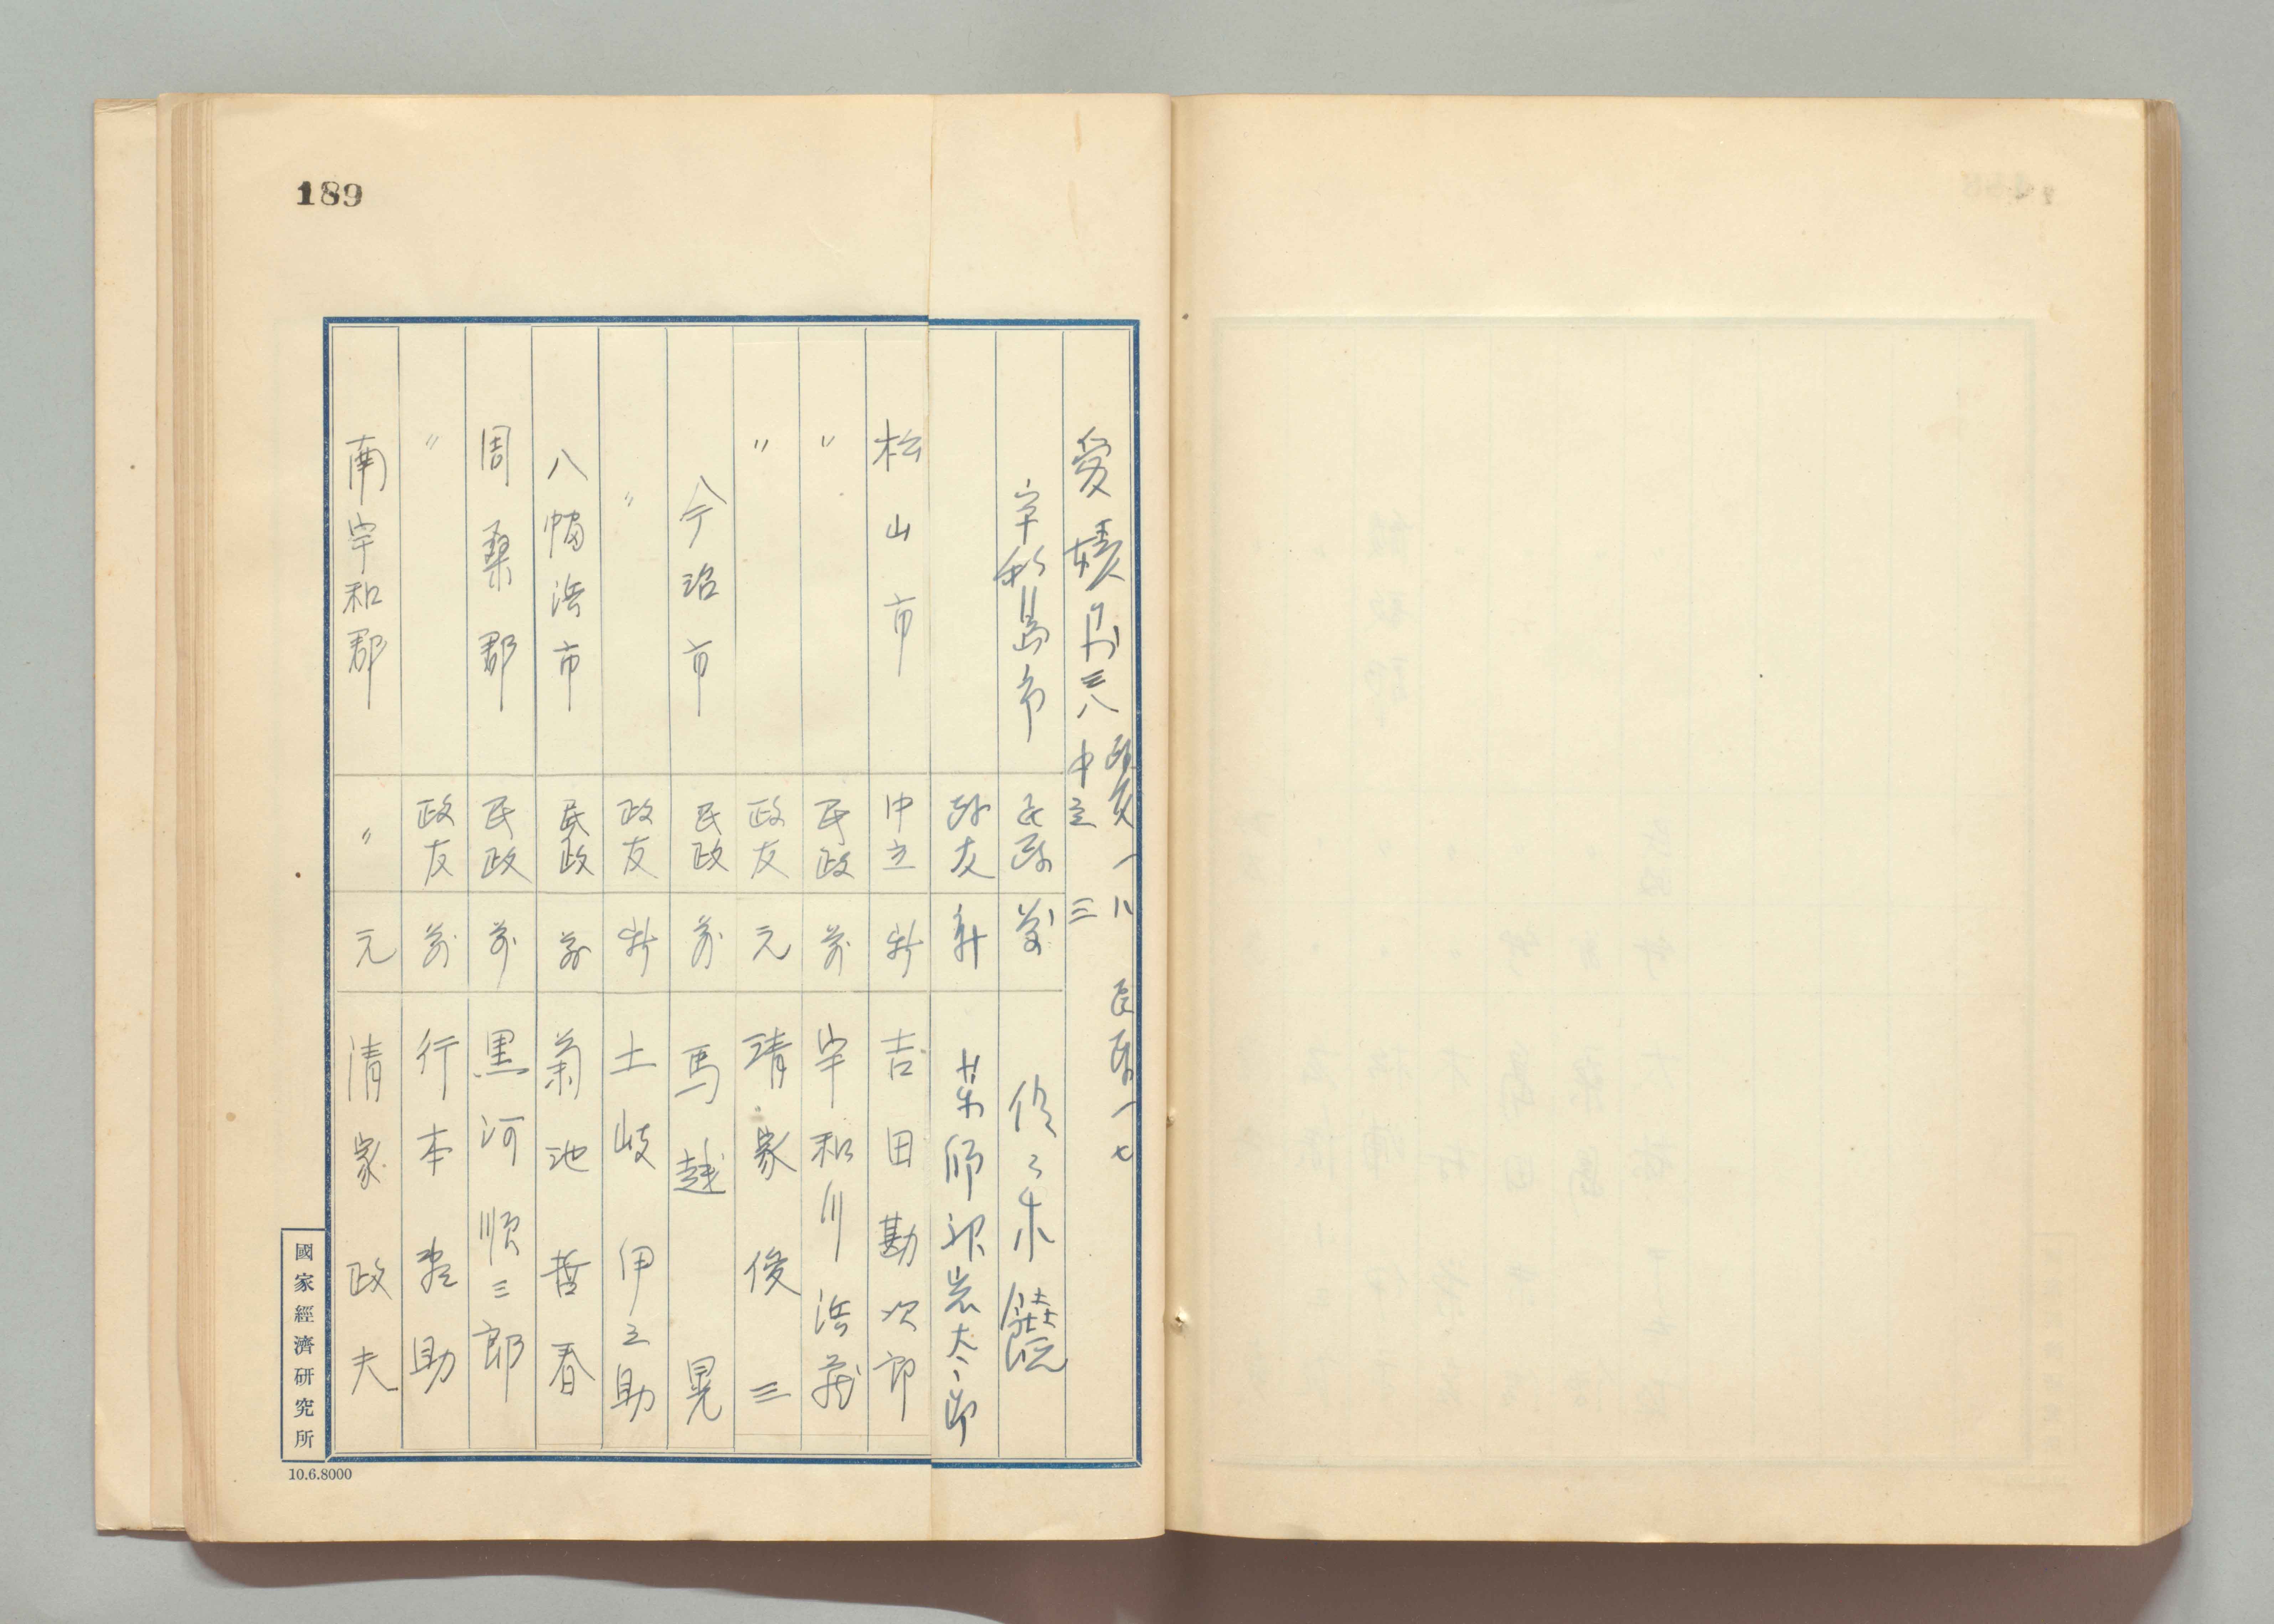 189
愛媛县 三八 政友 一八 民政 一七
中立 三
宇和島市 民政 前 佐々木饒
政友 新 薬師神岩太郎
松山市 中立 新 吉田勘次郎
〃 民政 前 宇和川浜蔵
〃 政友 元 清家俊三
今治市 民政 前 馬越晃
〃 政友 新 土岐伊之助
八幡浜市 民政 前 菊池哲春
周桑郡 民政 前 黒河順三郎
〃 政友 前 行本 助
南宇和郡 〃 元 清家政夫
國家經濟研究所
10.6.8000